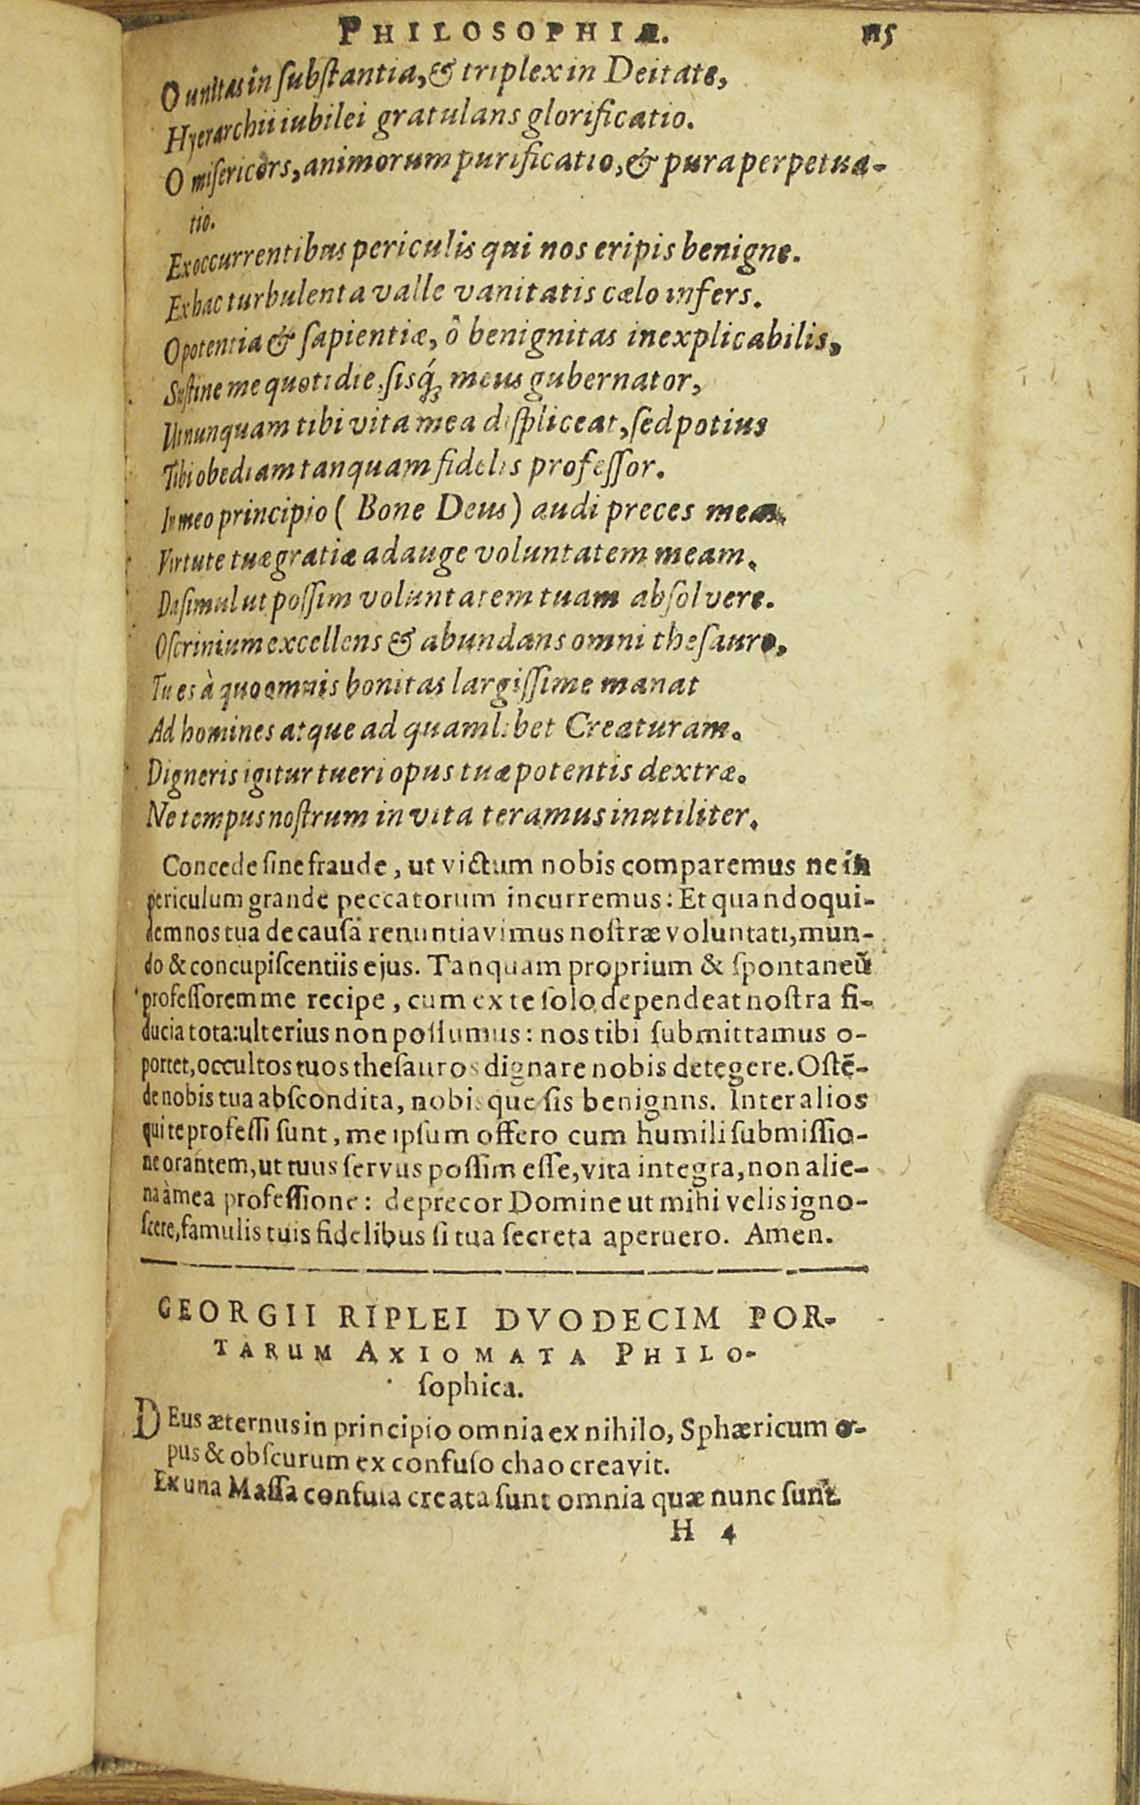 PHILOSOPHIÆ. 115
O unitas in substantia, & triplex in Deitate,
Hyerarchii iubilei gratulans glorificatio.
O misericors, animorum purificatio, & pura perpetua-
tio.
Ex occurrentibus periculis qui nos eripis benigne.
Ex hac turbulenta valle vanitatis cælo infers.
O potentia & sapientiæ, ô benignitas inexplicabilis,
Sustine me quotidie, sisq́ meus gubernator,
Ut nunquam tibi vita mea displiceat, sed potius
Tibi obediam tanquam fidelis professor.
In meo principio ( Bone Deus ) audi preces meas.
Virtute tuæ gratiæ adauge voluntatem meam.
Da simul ut possim voluntatem tuam absolvere.
O scrinium excellens & abundans omni thesauro,
Tu es à quo omnis bonitas largissime manat
Ad homines atque ad quamlibet Creaturam.
Digneris igitur tueri opus tuæ potentis dextræ.
Ne tempus nostrum in vita teramus inutiliter.
Concede sine fraude, ut victum nobis comparemus ne in
periculum grande peccatorum incurremus: Et quandoqui-
dem nos tua de causâ renuntiavimus nostræ voluntati, mun-
do & concupiscentiis ejus. Tanquam proprium & spontaneũ
professorem me recipe, cum ex te solo dependeat nostra fi-
ducia tota: ulterius non possumus: nos tibi submittamus o-
portet, occultos tuos thesauros dignare nobis detegere. Ostẽ-
de nobis tua abscondita, nobisque sis benignns. Inter alios
qui te professi sunt, me ipsum offero cum humili submissio-
ne orantem, ut tuus servus possim esse, vita integra, non alie-
na à mea professione: deprecor Domine ut mihi velis igno-
scere, famulis tuis fidelibus si tua secreta aperuero. Amen.
GEORGII RIPLEI DVODECIM POR-
TARUM AXIOMATA PHILO-
sophica.
DEus æternus in principio omnia ex nihilo, Sphæricum o-
pus & obscurum ex confuso chao creavit.
Ex una Massa confusa creata sunt omnia quæ nunc sunt.
H 4